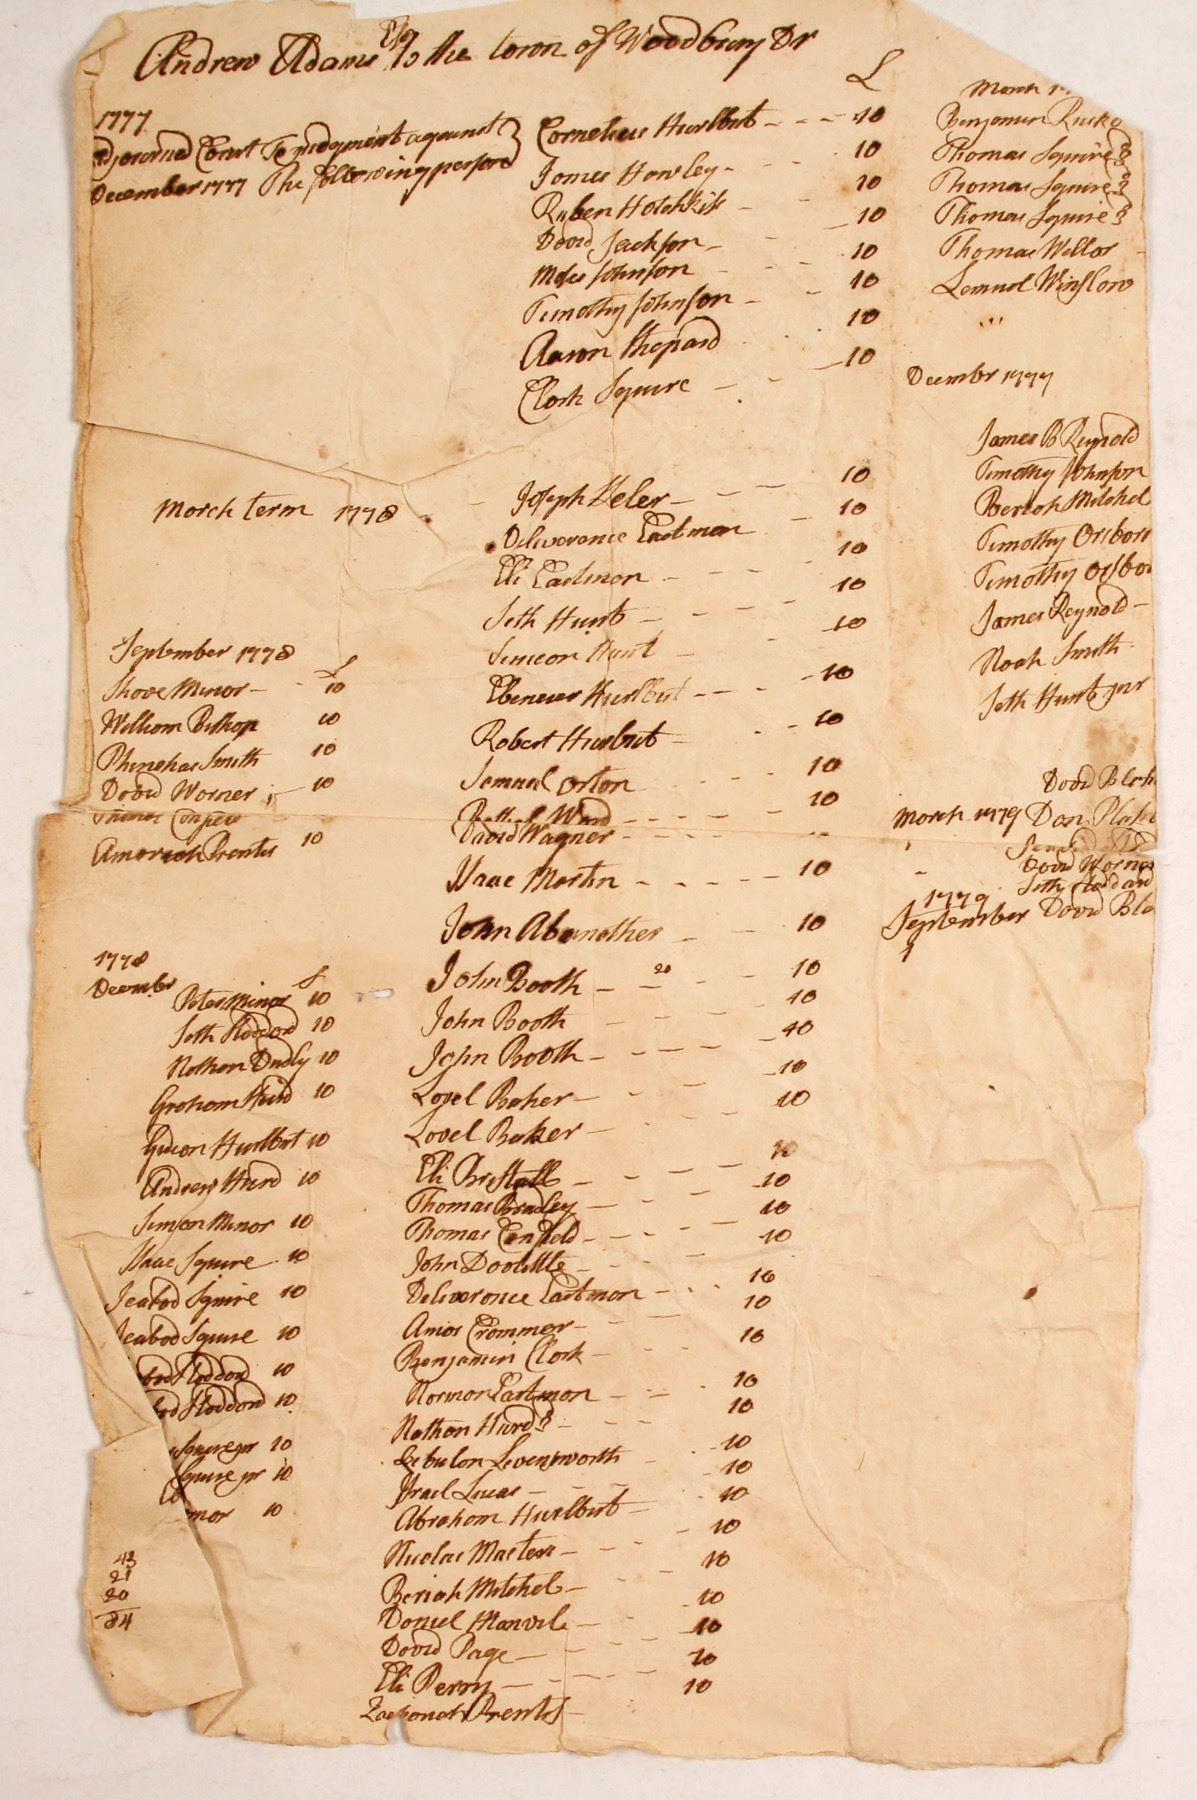 Andrew Adams Esq To the town of Woodbury Dr
1777
Adjourned Court To judgment against
December 1777 The following persons
£
Cornelius Hurlbut 10
James Hawley 10
Ruben Hotchkiss 10
David Jackson 10
Moses Johnson 10
Timothy Johnson 10
Aaron Shepard 10
Clark Squire 10
March term 1778
Joseph Peler 10
Deliverance Eastman 10
Eli Eastman 10
Seth Hunt 10
Simeon Hunt 10
Ebenezer Hurlbut 10
Robert Hurlbut 10
Samuel Orton 10
Ward 10
David Wagner
Isaac Martin 10
John Abernather 10
John Booth 20 10
John Booth 10
John Booth 10
Lovel Baker 10
Lovel Baker 10
Eli Bristoll 10
Thomas Bradley 10
Thomas Canfield 10
John Doolittle 10
Deliverance Eastman 10
Amos Crammer 10
Benjamin Clark 10
Norman Eastman 10
Nathan Hurd 3 10
Zebulon Levensworth 10
Israel Lucas 10
Abraham Hurlbut 10
Nicolas Masters 10
Beriah Mitchel 10
Daniel Manvil 10
David Page 10
Eli Perry 10
Zachariah Prentis 10
September 1778
£
Shove Minor 10
William Bishop 10
Phinehas Smith 10
David Warner 10
Thomas
Amariah Prentis 10
1778
December £
Peter Minor 10
Seth Stoddord 10
Nathan Dudly 10
Graham Hurd 10
Gideon Hurlbut 10
Andrew Hurd 10
Simeon Minor 10
Isaac Squire 10
Icabod Squire 10
Icabod Squire 10
bod Stoddord 10
bod Stoddord 10
Squire jnr 10
Squire jnr 10
mor 10
43
21
20
84
March
Benjamin Ruck
Thomas Squire 3
Thomas Squire 3
Thomas Squire 3
Thomas Wellor
Lemuel Winslow
"'
Decembr 1777
James B Reynold
Timothy Johnson
Beriah Mitchel
Timothy Orsborn
Timothy Orsbor
James Reynold
Noah Smith
Seth Hunt jnr
David Blak
March 1779 Dan Blake
David Worner
Seth Stoddard
1779
September David Bla